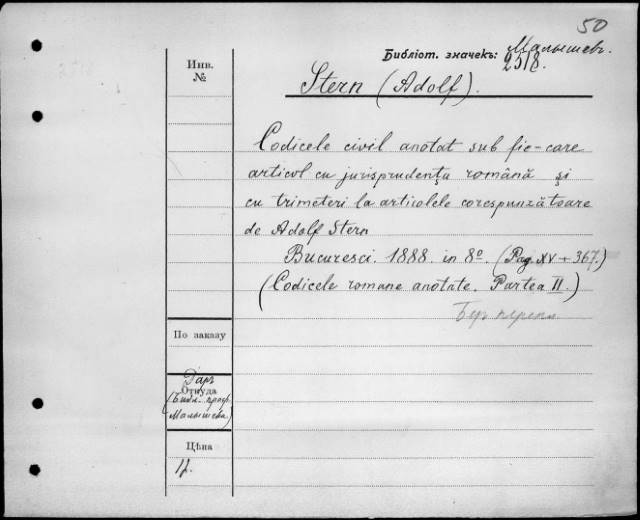 50
Инв.
№
Библіот. значекъ: Малышев.
2518.
Stern (Adolf).
Codicele civil anotat sub fie-care
articol cu jurisprudenţa română şi
cu trimeteri la articolele corespundătoare
de Adolf Stern
Bucuresci. 1888. in 8º. (Pag. XV + 367.)
(Codicele romane anotate. Partea II.)
По заказу
Даръ
Откуда
(Библ. проф.
Малышева)
Цѣна